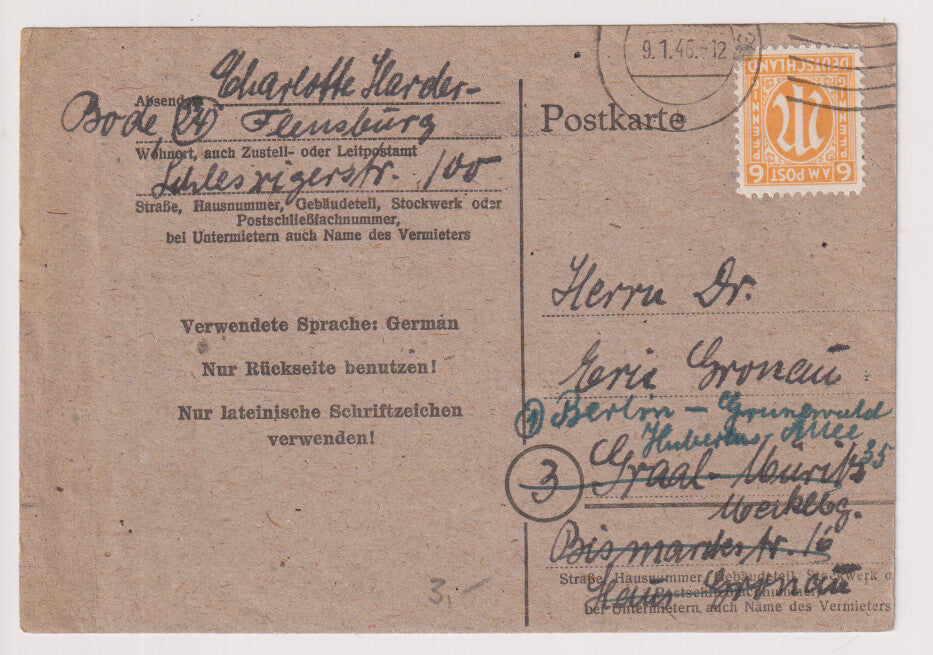 Charlotte Harder-
Absender:
Bode, (24) Flensburg
Wohnort, auch Zustell- oder Leitpostamt
Schleswigerstr. 100
Straße, Hausnummer, Gebäudeteil, Stockwerk oder
Postschließfachnummer,
bei Untermietern auch Name des Vermieters
Verwendete Sprache: German
Nur Rückseite benutzen!
Nur lateinische Schriftzeichen
verwenden!
3,-
9.1.46.-12
Postkarte
DEUTSCHLAND
PFENNIG
PFENNIG
M
6 AM POST 6
Herrn Dr.
Eric Gronau
(1) Berlin - Grunewald
Hubertus Allee
35
3 Graal-Müritz
Mecklbg.
Bismarckstr. 16
Straße, Hausnummer, Gebäudeteil, Stockwerk o
Haus Gronau
Postschließfachnummer,
bei Untermietern auch Name des Vermieters